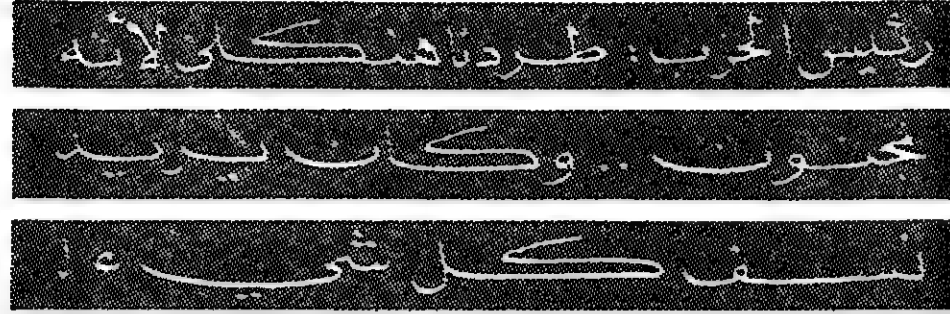 رئيس الحزب : طردنا هنكاوى لأنه
مجنون .. وكان يريد
نسف كل شيء !